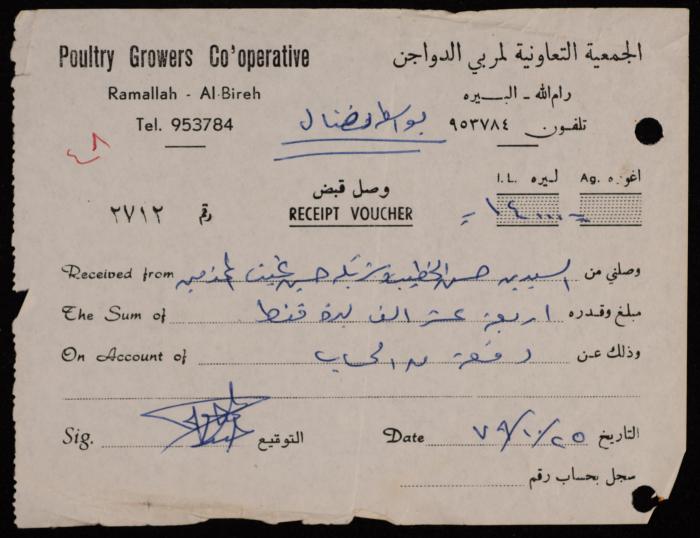 Poultry Growers Co'operative
الجمعية التعاونية لمربي الدواجن
Ramallah - Al-Bireh
رام الله - البيره
Tel. 953784
تلفون ٩٥٣٧٨٤
بواسطة نضال
٤٨
اغوره .Ag ليره .I.L
وصل قبض
RECEIPT VOUCHER
رقم ٢٧١٢
= ١٤٠٠٠ =
Received from السيدين حسن الخطيب وشريكه حسين المحترمين وصلني من
The Sum of اربعة عشر الف ليرة فقط مبلغ وقدره
On Account of دفعة من الحساب وذلك عن
Sig. التوقيع
Date ٧٩/١٠/٢٥ التاريخ
سجل بحساب رقم